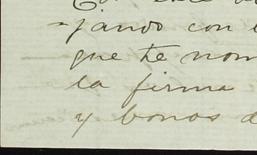 jando con
que te nom
la firma
y bonos d